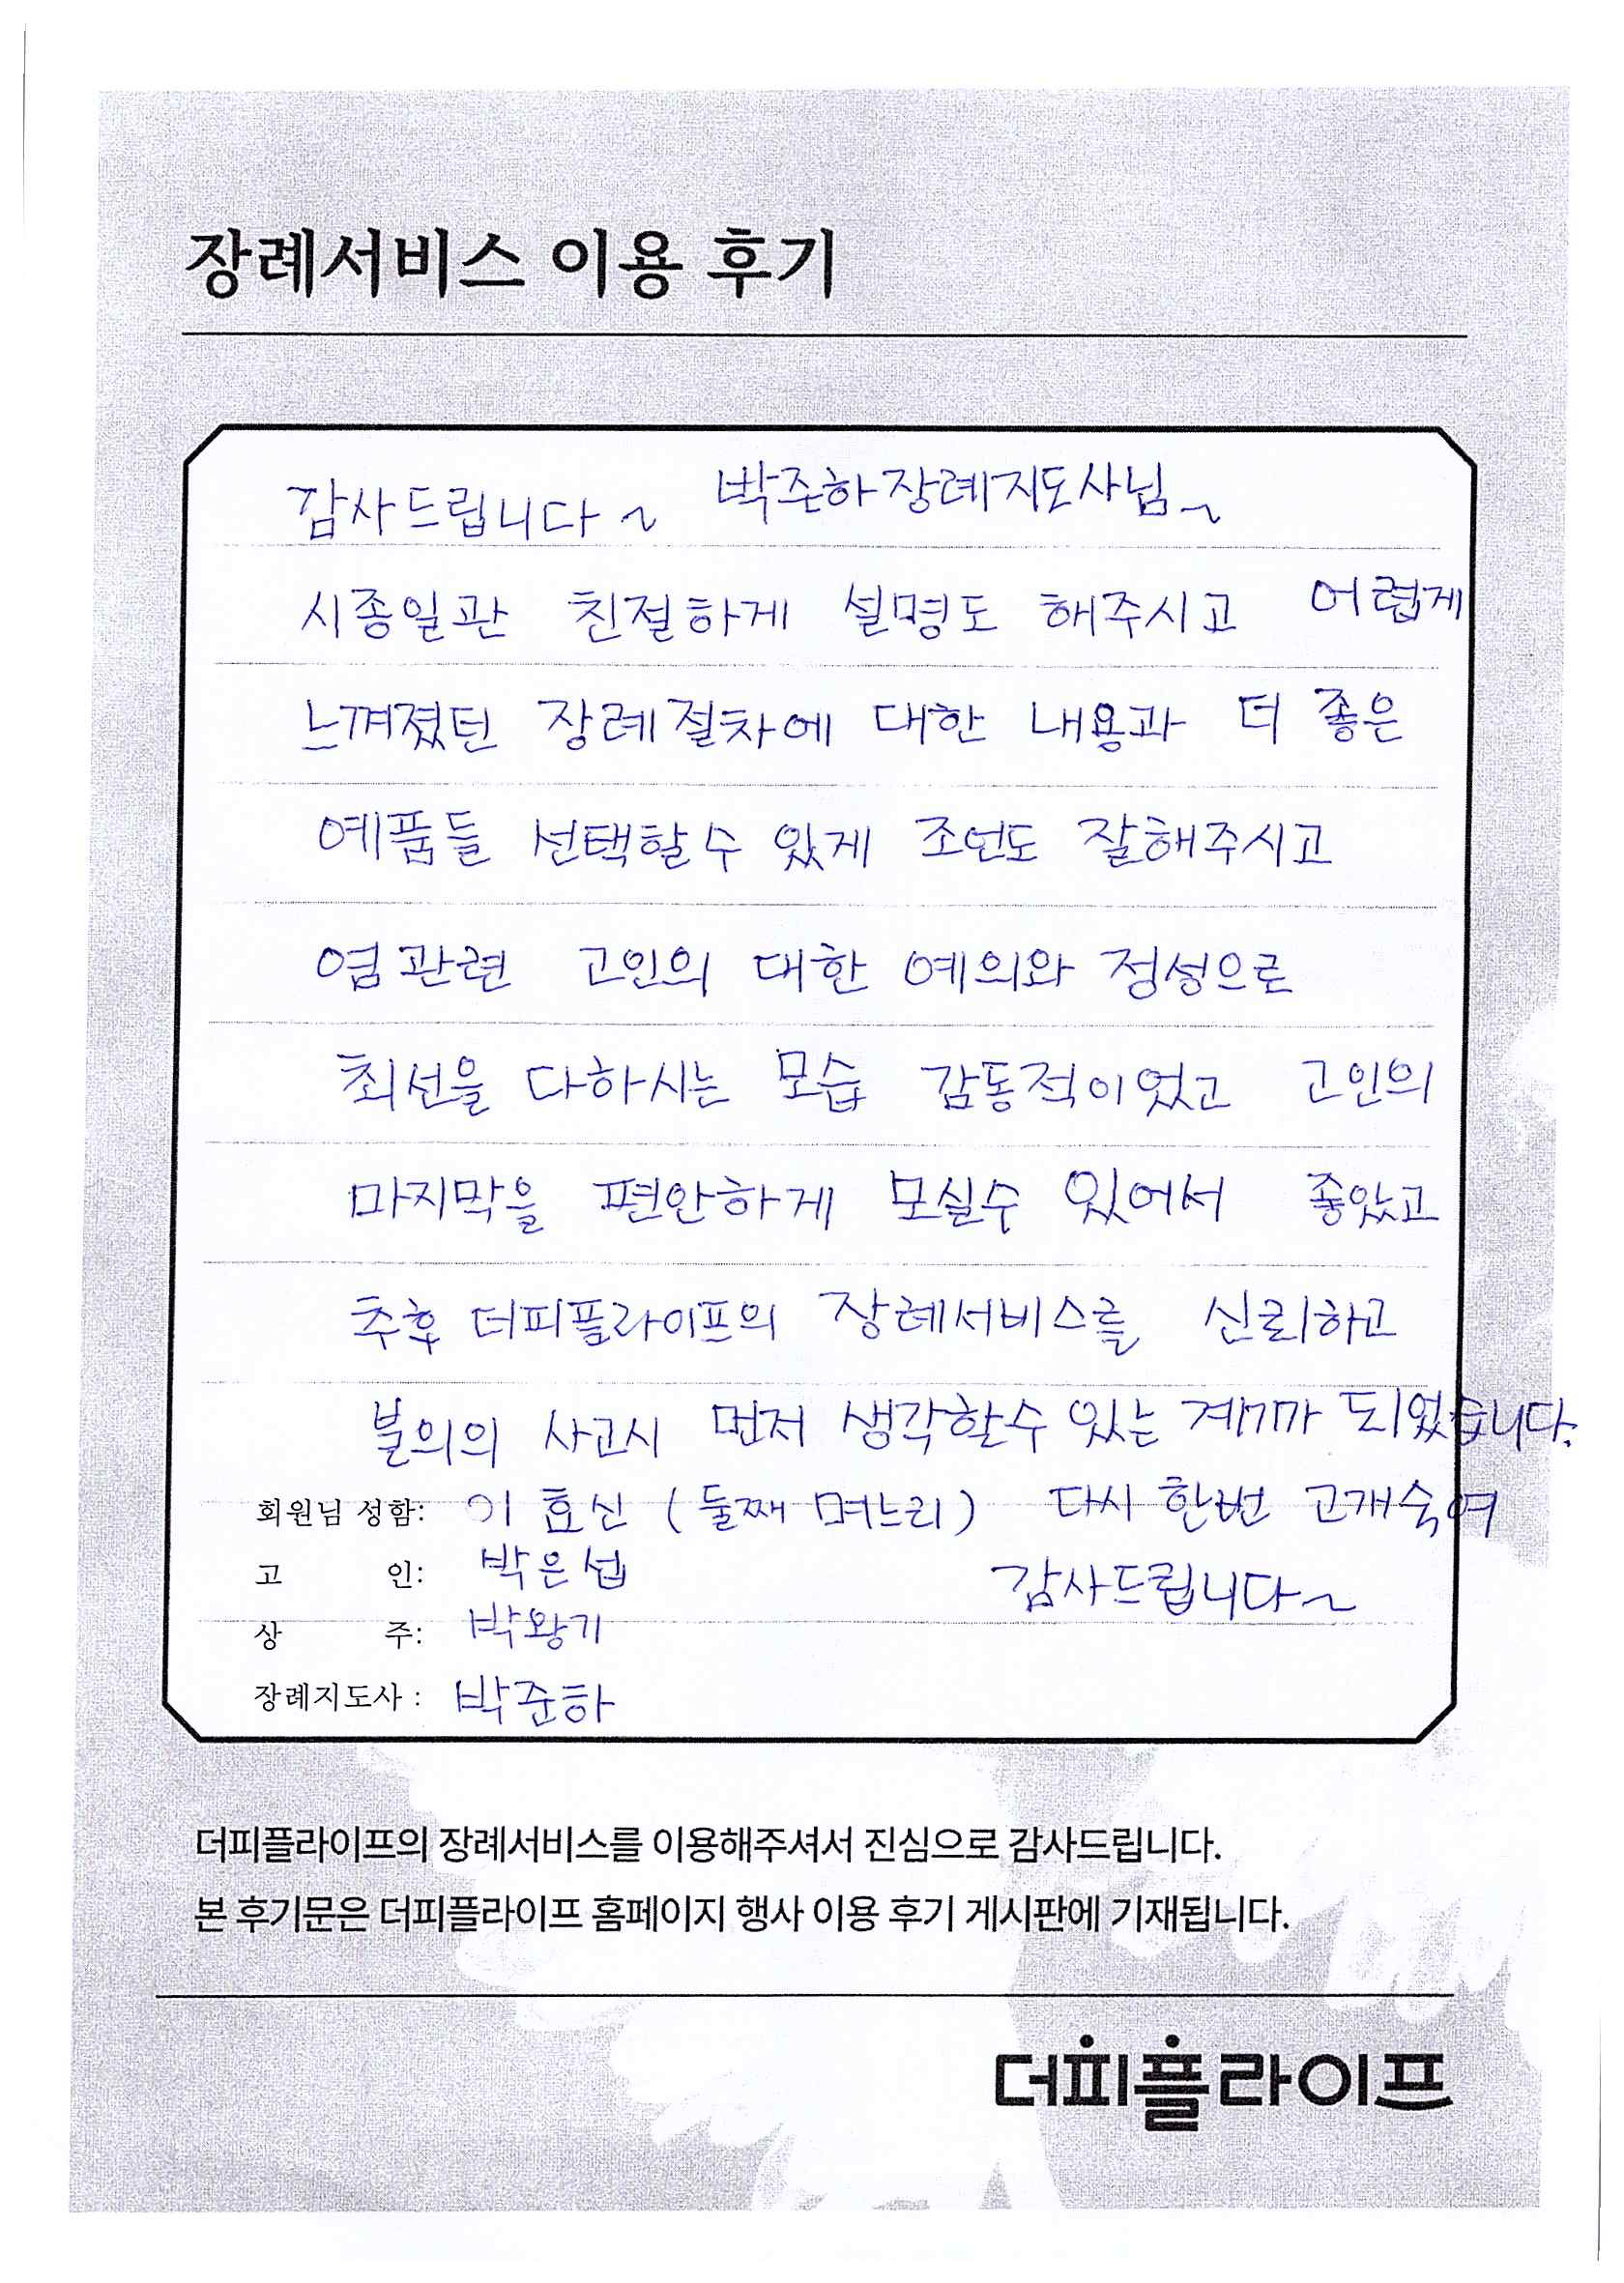 장례서비스 이용 후기
감사드립니다~ 박준하장례지도사님~
시종일관 친절하게 설명도 해주시고 어렵게
느껴졌던 장례절차에 대한 내용과 더 좋은
예품들 선택할수 있게 조언도 잘해주시고
염관련 고인의 대한 예의와 정성으로
최선을 다하시는 모습 감동적이었고 고인의
마지막을 편안하게 모실수 있어서 좋았고
추후 더피플라이프의 장례서비스를 신뢰하고
불의의 사고시 먼저 생각할수 있는 계기가 되었습니다.
회원님 성함: 이효신 (둘째 며느리) 다시 한번 고개숙여
고 인: 박은섭 감사드립니다~
상 주: 박왕기
장례지도사 : 박준하
더피플라이프의 장례서비스를 이용해주셔서 진심으로 감사드립니다.
본 후기문은 더피플라이프 홈페이지 행사 이용 후기 게시판에 기재됩니다.
더피플라이프